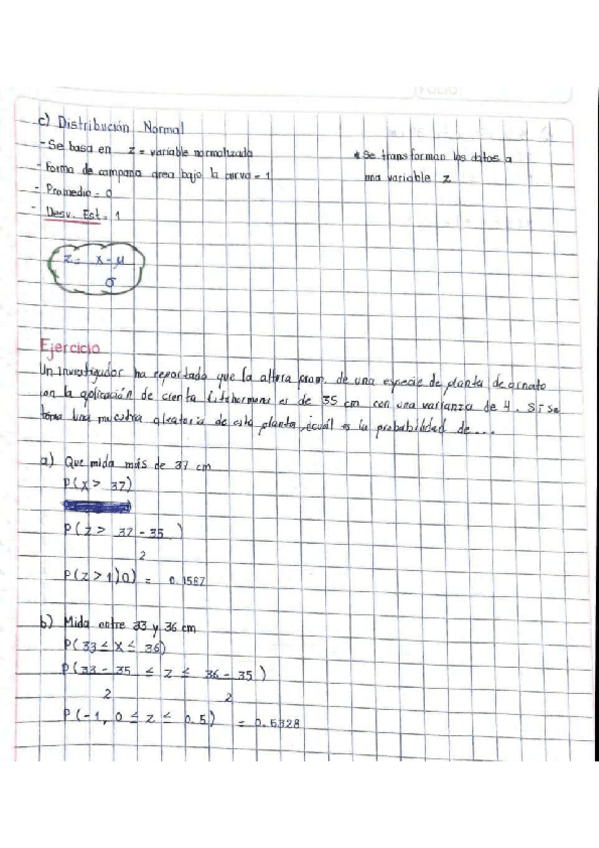 FOLIO
c) Distribución Normal
- Se basa en z = variable normalizada
* Se transforman los datos a
una variable z
- Forma de campana área bajo la curva = 1
- Promedio = 0
- Desv. Est. = 1
z = x - μ
σ
Ejercicio
Un investigador ha reportado que la altura prom. de una especie de planta de ornato
con la aplicación de cierta fitohormona es de 35 cm con una varianza de 4. Si se
toma una muestra aleatoria de esta planta, ¿cuál es la probabilidad de...
a) Que mida más de 37 cm
P(x > 37)
P(z > 37 - 35)
2
P(z > 1,0) = 0.1587
b) Mida entre 33 y 36 cm
P(33 ≤ x ≤ 36)
P(33 - 35 ≤ z ≤ 36 - 35)
2 2
P(-1,0 ≤ z ≤ 0.5) = 0.5328